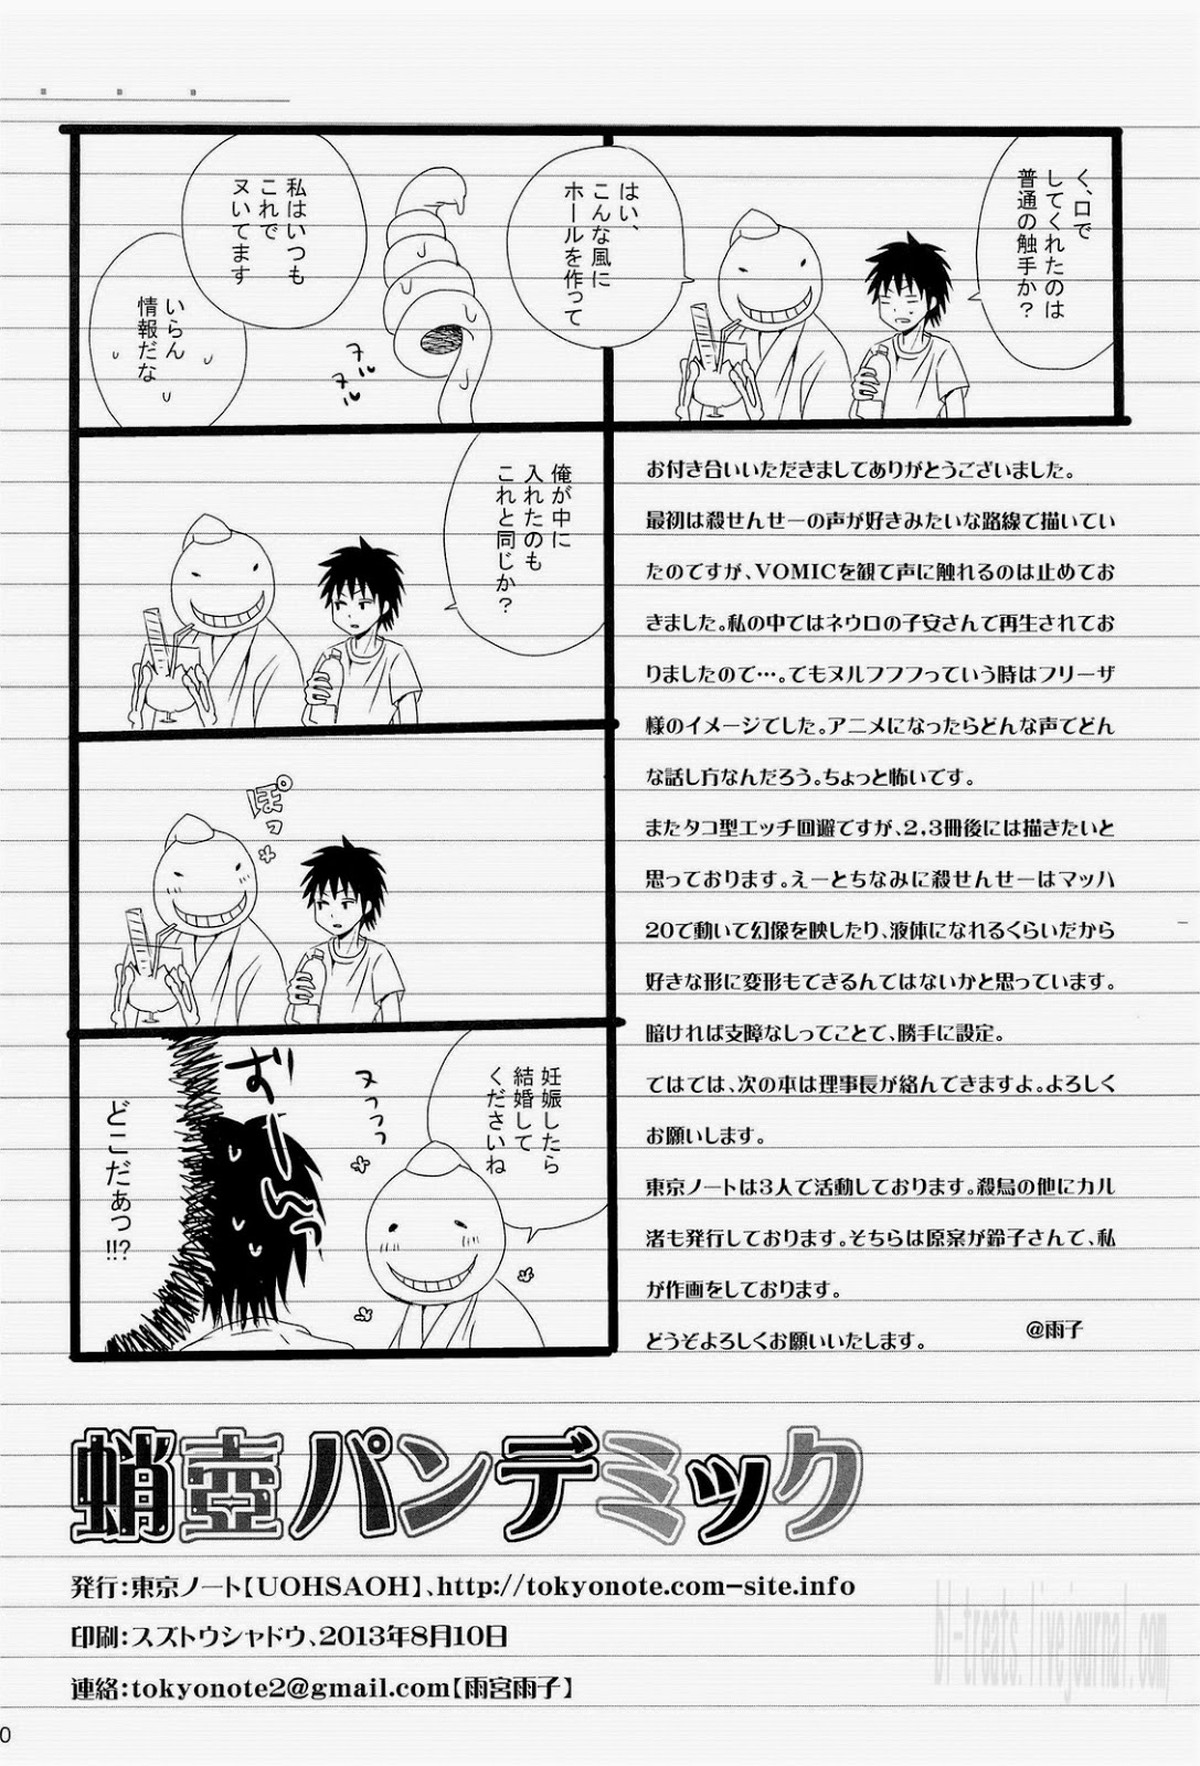 く、口で
してくれたのは
普通の触手か？
はい、
こんな風に
ホールを作って
私はいつも
これで
ヌいてます
ヌル
ヌル
いらん
情報だな
俺が中に
入れたのも
これと同じか？
ぽっ
妊娠したら
結婚して
くださいね
ヌフフフ
ずーーんっ
どこだぁっ!!?
お付き合いいただきましてありがとうございました。
最初は殺せんせーの声が好きみたいな路線で描いてい
たのですが、VOMICを観て声に触れるのは止めてお
きました。私の中ではネウロの子安さんで再生されてお
りましたので…。でもヌルフフフっていう時はフリーザ
様のイメージでした。アニメになったらどんな声でどん
な話し方なんだろう。ちょっと怖いです。
またタコ型エッチ回避ですが、2,3冊後には描きたいと
思っております。えーとちなみに殺せんせーはマッハ
20で動いて幻像を映したり、液体になれるくらいだから
好きな形に変形もできるんではないかと思っています。
暗ければ支障なしってことで、勝手に設定。
ではでは、次の本は理事長が絡んできますよ。よろしく
お願いします。
東京ノートは3人で活動しております。殺烏の他にカル
渚も発行しております。そちらは原案が鈴子さんで、私
が作画をしております。
どうぞよろしくお願いいたします。
@雨子
蛸壺パンデミック
発行：東京ノート【UOHSAOH】、http://tokyonote.com-site.info
印刷：スズトウシャドウ、2013年8月10日
連絡：tokyonote2@gmail.com【雨宮雨子】
bl-treats.livejournal.com/
0